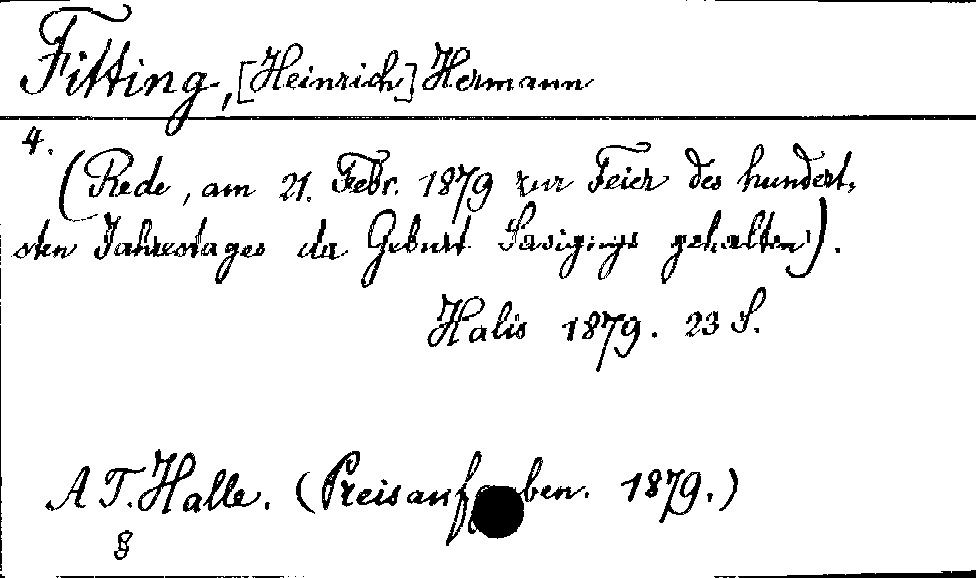 Fitting, [Heinrich] Hermann
4.
(Rede, am 21. Febr. 1879 zur Feier des hundert-
sten Jahrestages der Geburt Savignys gehalten).
Halis 1879. 23 S.
A T. Halle. (Preisaufgaben. 1879.)
8